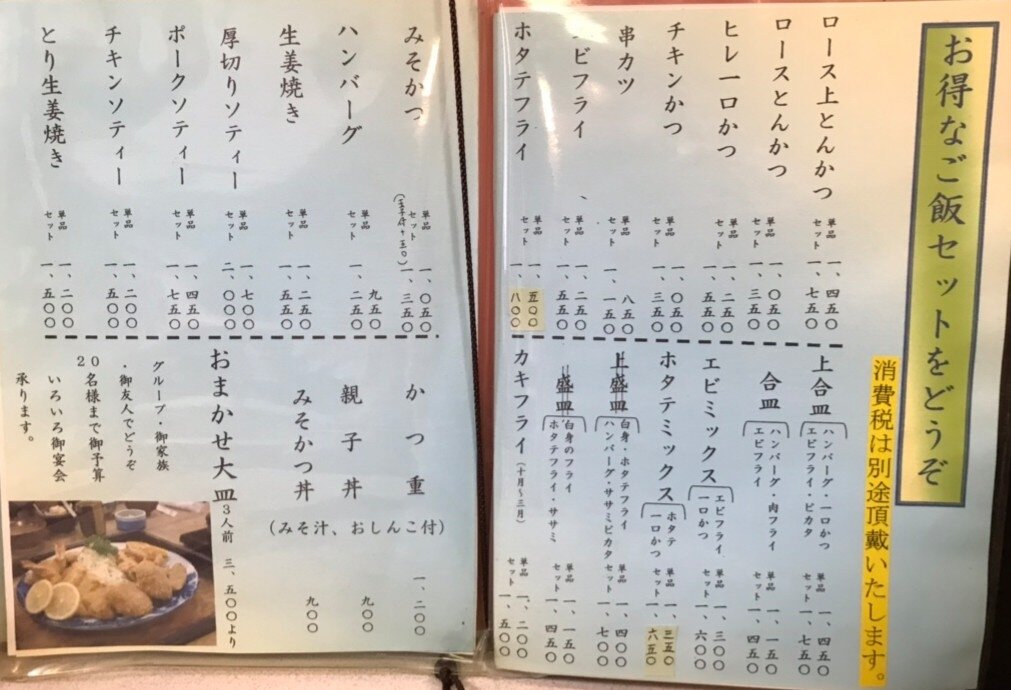 お得なご飯セットをどうぞ
消費税は別途頂戴いたします。
ロース上とんかつ 単品 一、四五〇 セット 一、七五〇
ロースとんかつ 単品 一、〇五〇 セット 一、三五〇
ヒレ一口かつ 単品 一、二五〇 セット 一、五五〇
チキンかつ 単品 一、〇五〇 セット 一、三五〇
串カツ 単品 八五〇 セット 一、一五〇
ビフライ 単品 一、二五〇 セット 一、五五〇
ホタテフライ 単品 一、五〇〇 セット 一、八〇〇
上合皿 ハンバーグ・一口かつ エビフライ・ピカタ 単品 一、四五〇 セット 一、七五〇
合皿 ハンバーグ・肉フライ エビフライ 単品 一、一五〇 セット 一、四五〇
エビミックス エビフライ、一口かつ 単品 一、三〇〇 セット 一、六〇〇
ホタテミックス ホタテ 一口かつ 単品 一、三五〇 セット 一、六五〇
上盛皿 白身・ホタテフライ ハンバーグ・ササミピカタ 単品 一、四〇〇 セット 一、七〇〇
盛皿 白身のフライ ホタテフライ・ササミ 単品 一、一五〇 セット 一、四五〇
カキフライ (十月〜三月) 単品 一、二〇〇 セット 一、五〇〇
みそかつ 単品 一、〇五〇 セット 一、三五〇
ハンバーグ 単品 九五〇 セット 一、二五〇
生姜焼き 単品 一、二五〇 セット 一、五五〇
厚切りソティー 単品 一、七〇〇 セット 二、〇〇〇
ポークソティー 単品 一、四五〇 セット 一、七五〇
チキンソティー 単品 一、二〇〇 セット 一、五〇〇
とり生姜焼き 単品 一、二〇〇 セット 一、五〇〇
かつ重 一、二〇〇
親子丼 九〇〇
みそかつ丼 九〇〇
(みそ汁、おしんこ付)
おまかせ大皿 3人前 三、五〇〇より
グループ・御家族
・御友人でどうぞ
20名様まで御予算
いろいろ御宴会
承ります。